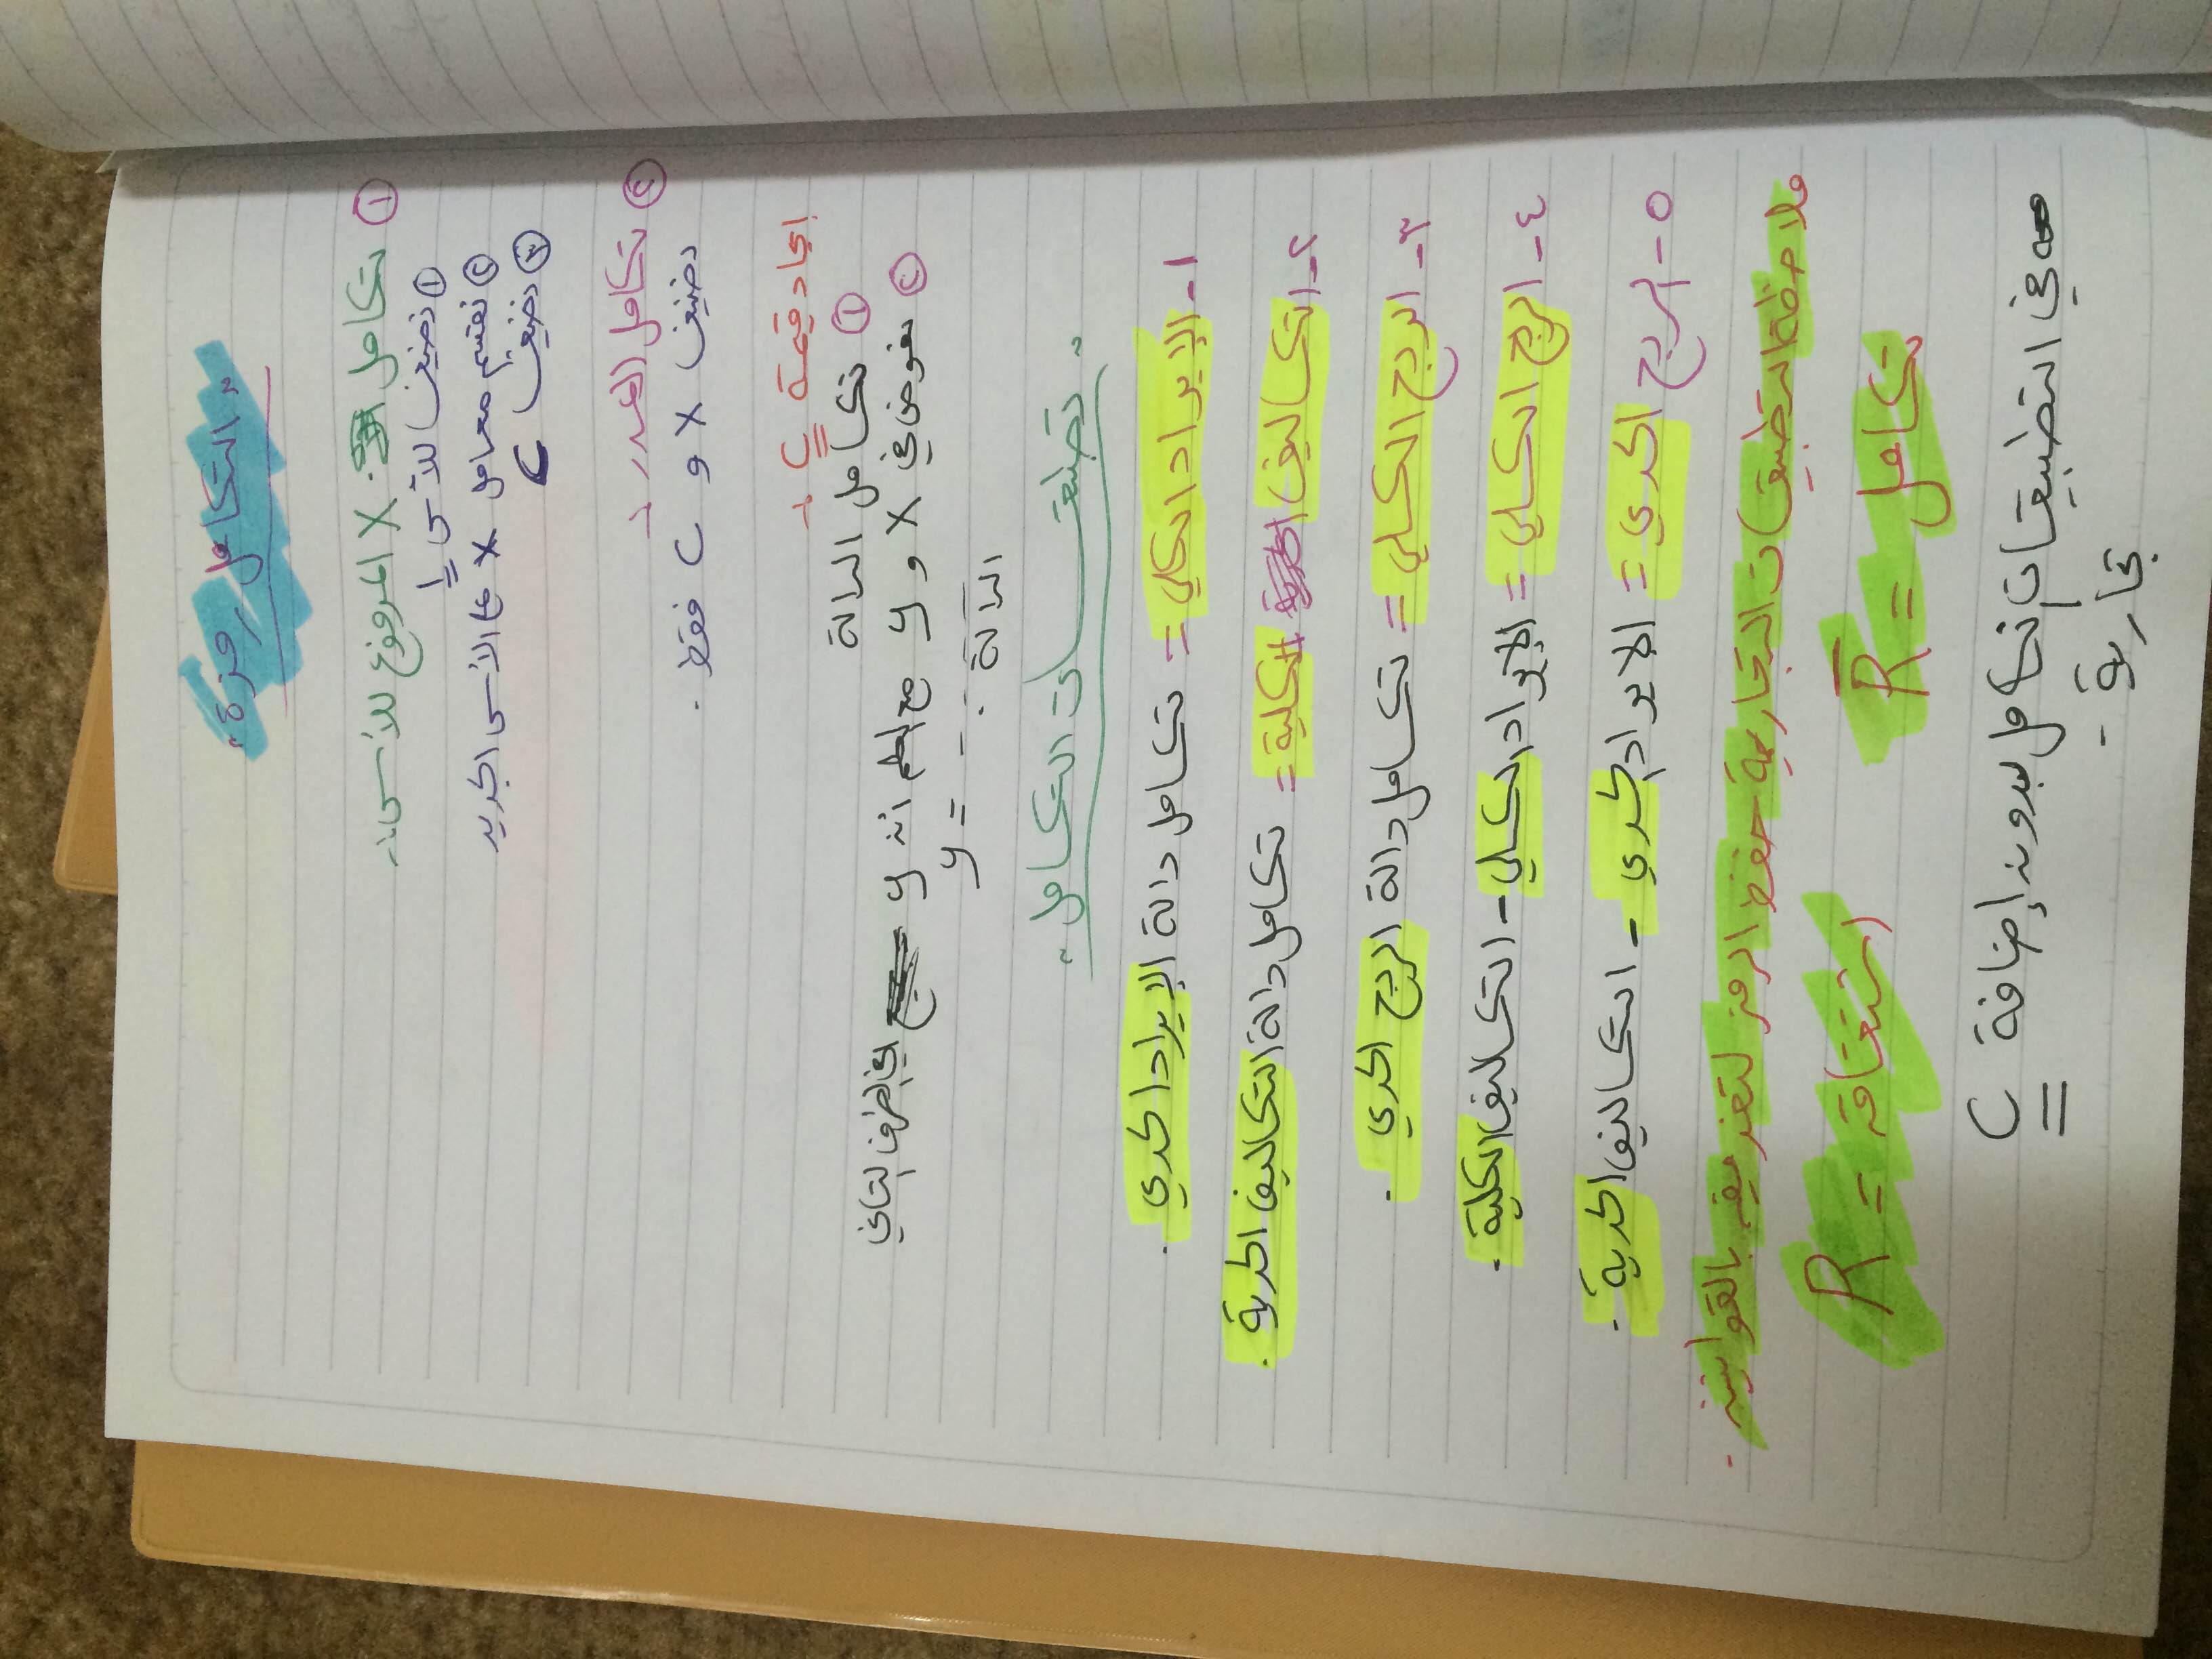 "التكامل رمزه"
① تكامل X المرفوع للأس :-
① نضيف للأس 1
② نقسم معامل X على الأس الجديد
③ نضيف C
② تكامل العدد :-
نضيف X و C فقط .
إيجاد قيمة C :-
① تكامل الدالة
② نعوض في X و y مع العلم انه y في الطرف الثاني
y = - . الدالة
" تطبيقات التكامل "
١- الإيراد الكلي = تكامل دالة الإيراد الحدي .
٢- التكاليف الكلية = تكامل دالة التكاليف الحدية .
٣- الربح الكلي = تكامل دالة الربح الحدي .
٤- الربح الكلي = الإيراد الكلي - التكاليف الكلية .
٥- الربح الحدي = الايراد الحدي - التكاليف الحدية .
ملاحظة التطبيقات التجارية حفظ الرمز لتغنر فيه بالقوانين .
R̄ = تكامل R = اشتقاقة
في التطبيقات نكامل بدون إضافة C
تجارية -